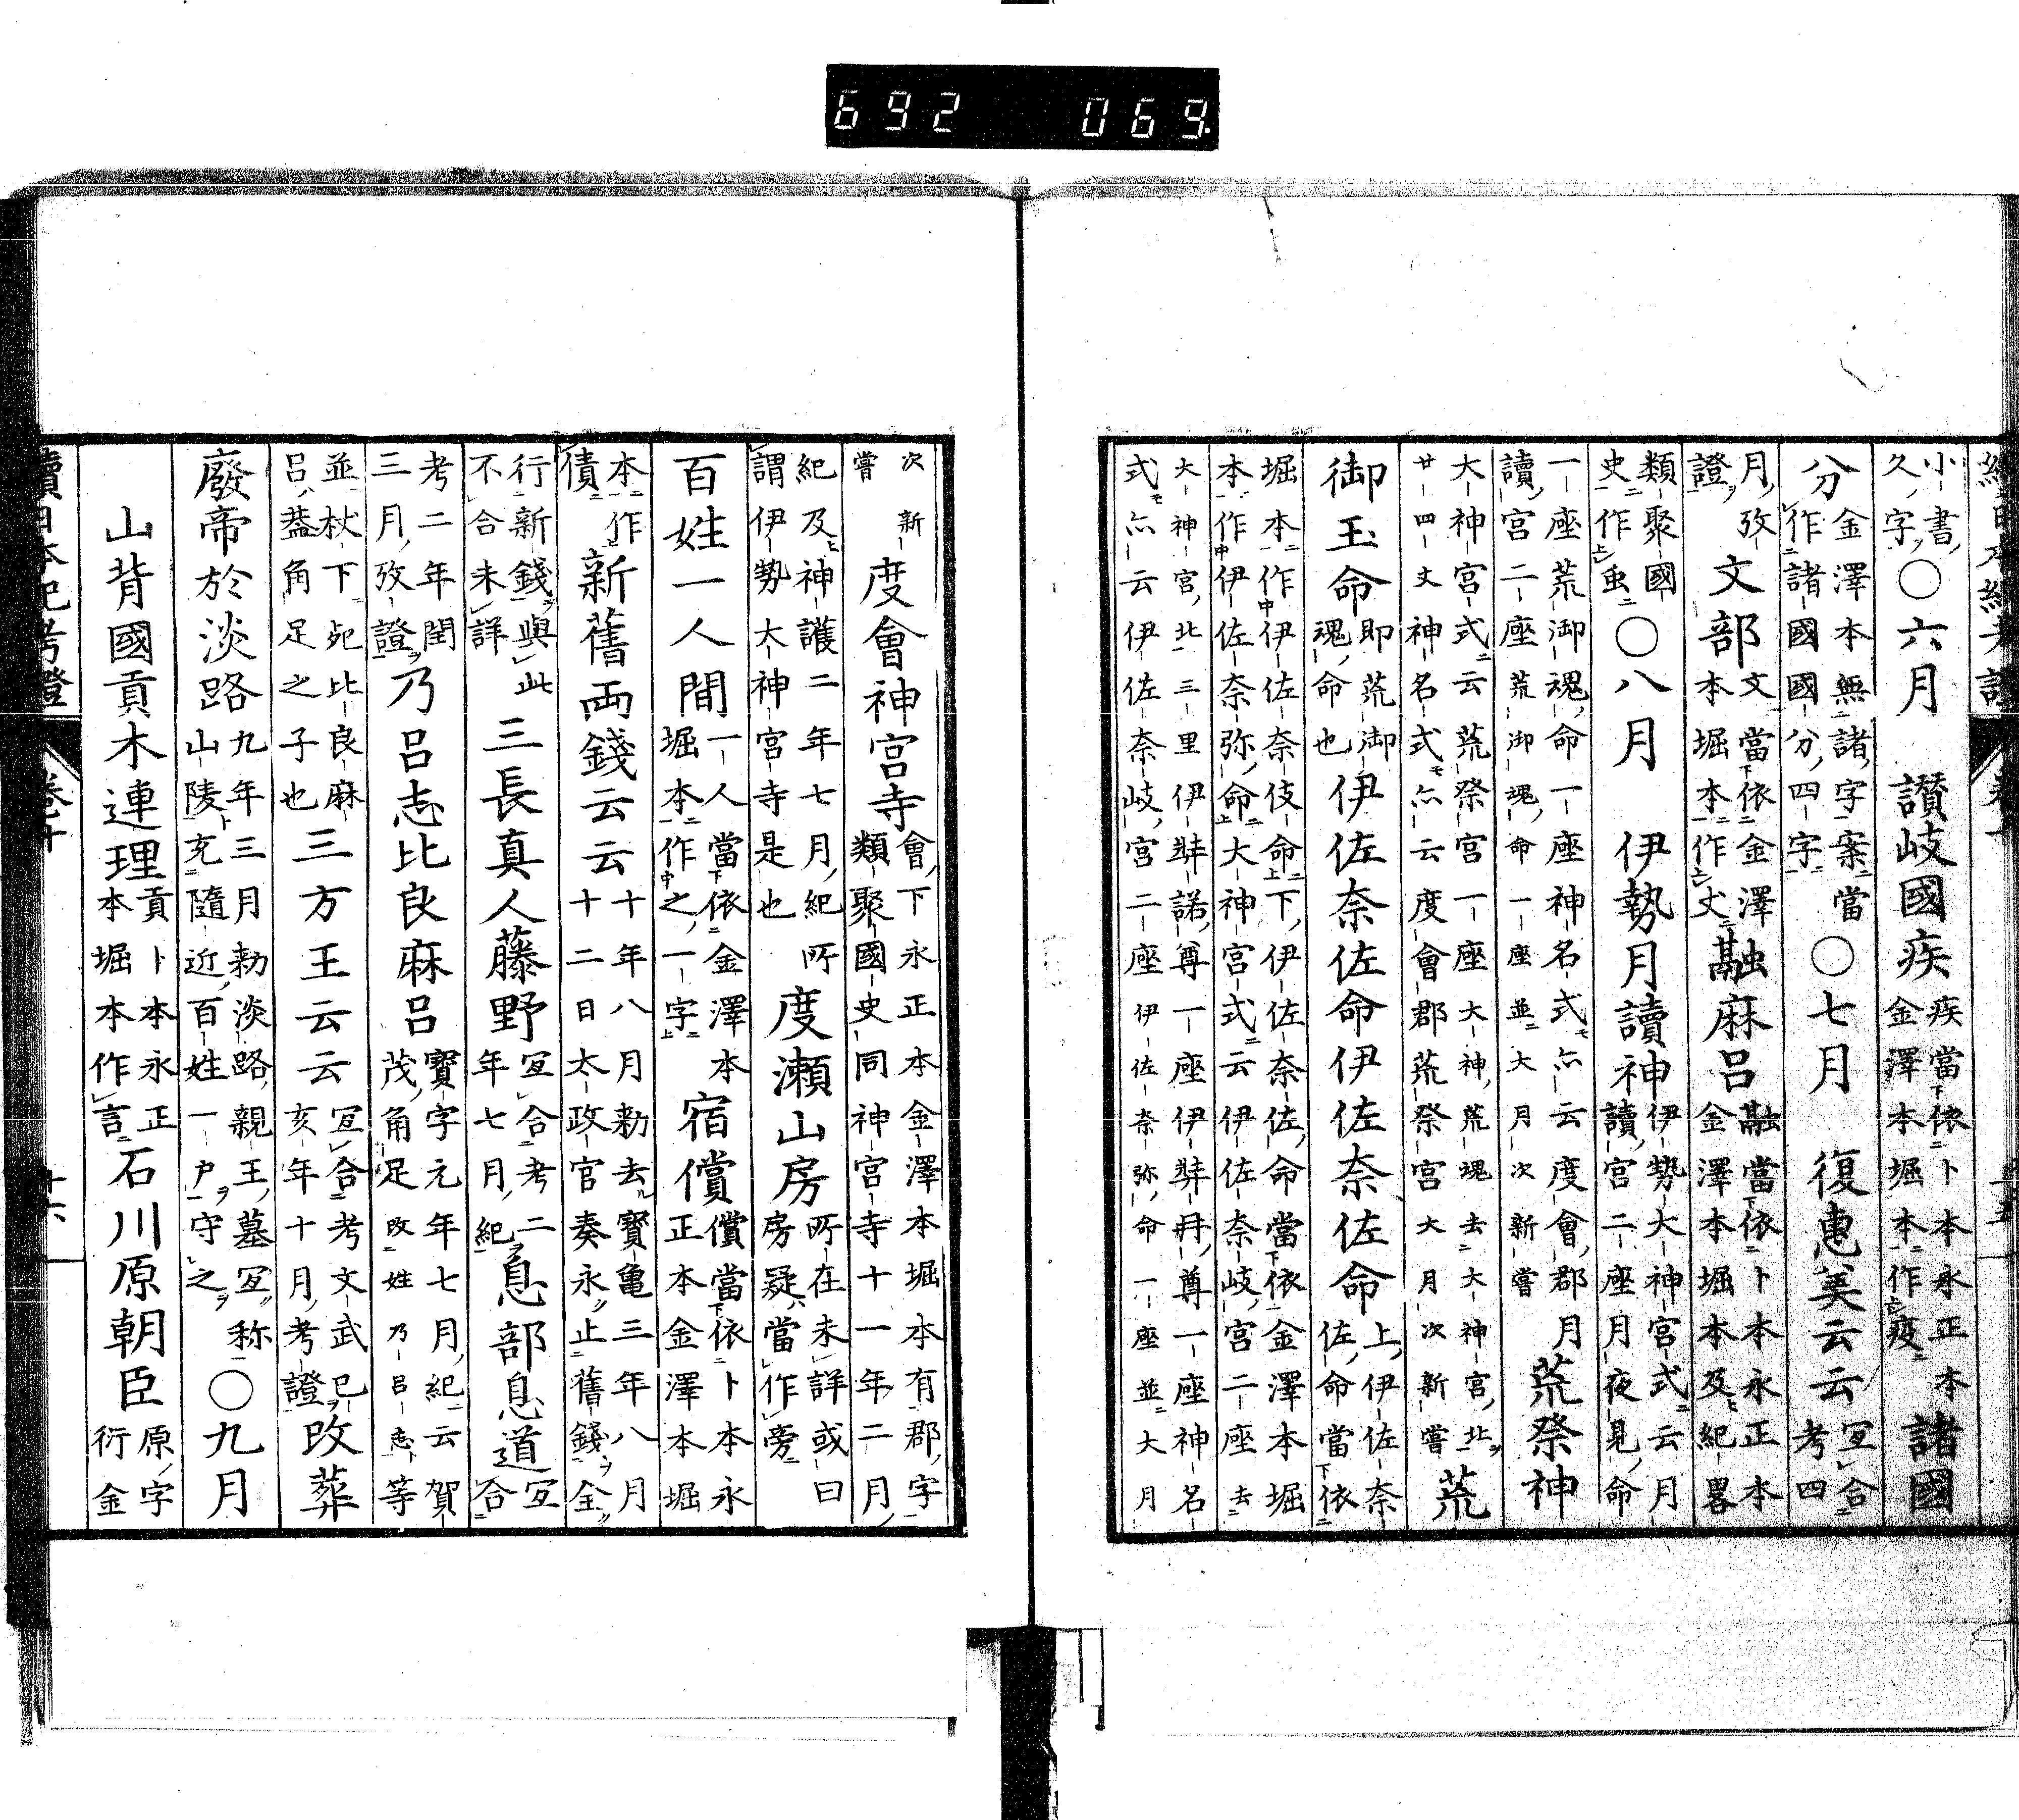 692 069
小書、久字、〇六月 讃岐國疾 疾當依卜本永正本金澤本堀本作疫 諸國
分 金澤本無諸字案當作諸國國分四字 〇七月 復惠美云云 宜合考四
月、攷證 文部 文當依金澤本堀本作丈 融麻呂 融當依卜本永正本金澤本堀本及紀畧
類聚國史作虫 〇八月 伊勢月讀神 伊勢大神宮式云月讀宮二座月夜見命
一座荒御魂命一座神名式亦云度會郡月讀宮二座荒御魂命一座並大月次新嘗 荒祭神
大神宮式云荒祭宮一座大神荒魂去大神宮北廿四丈神名式亦云度會郡荒祭宮大月次新嘗 荒
御玉命 即荒御魂命也 伊佐奈佐命伊佐奈佐命 上伊佐奈佐命當依
堀本作伊佐奈伎命下伊佐奈佐命當依金澤本堀本作伊佐奈弥命大神宮式云伊佐奈岐宮二座去
大神宮北三里伊弉諾尊一座伊弉冊尊一座神名式亦云伊佐奈岐宮二座伊佐奈弥命一座並大月
次新嘗 度會神宮寺 會下永正本金澤本堀本有郡字類聚國史同神宮寺十一年二月
紀及神護二年七月紀所謂伊勢大神宮寺是也 度瀬山房 所在未詳或曰房疑當作旁
百姓一人間 一人當依金澤本堀本作之一字 宿償 償當依卜本永正本金澤本堀
本作債 新舊両錢云云 十年八月勅去寳亀三年八月十二日太政官奏永止舊錢全
行新錢與此不合未詳 三長真人藤野 宜合考二年七月紀 息部息道 宜合
考二年閏三月攷證 乃呂志比良麻呂 寳字元年七月紀云賀茂角足改姓乃呂志等
並杖下死比良麻呂蓋角足之子也 三方王云云 宜合考文武巳亥年十月考證 改葬
廢帝於淡路 九年三月勅淡路親王墓宜称山陵充隨近百姓一戸守之 〇九月
山背國貢木連理 貢卜本永正本堀本作言 石川原朝臣 原字衍金
續日本紀考證 卷十 廿六